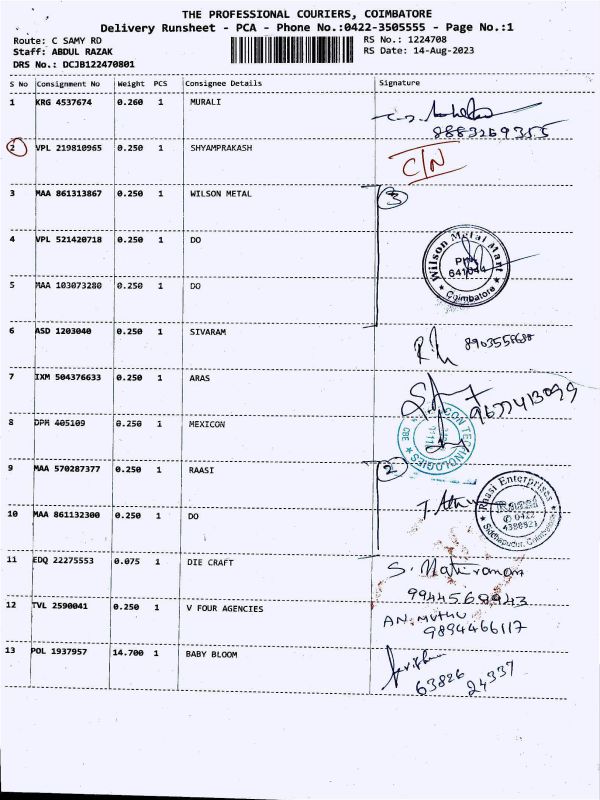 THE PROFESSIONAL COURIERS, COIMBATORE
Delivery Runsheet - PCA - Phone No.:0422-3505555 - Page No.:1
Route: C SAMY RD RS No.: 1224708
Staff: ABDUL RAZAK RS Date: 14-Aug-2023
DRS No.: DCJB122470801
S No Consignment No Weight PCS Consignee Details Signature
1 KRG 4537674 0.260 1 MURALI
8883269355
2 VPL 219810965 0.250 1 SHYAMPRAKASH C/N
3 MAA 861313867 0.250 1 WILSON METAL 3
4 VPL 521420718 0.250 1 DO
Wilson Metal Mart
641044
Coimbatore
5 MAA 103073280 0.250 1 DO
6 ASD 1203040 0.250 1 SIVARAM
7 IXM 504376633 0.250 1 ARAS
9677413099
8 DPM 405109 0.250 1 MEXICON
CON TECHNOLOGIES
CBE
9 MAA 570287377 0.250 1 RAASI 2
Raasi Enterprises
Raasi
0422
4388921
Siddhapudur, Coimbatore
10 MAA 861132300 0.250 1 DO
11 EDQ 22275553 0.075 1 DIE CRAFT
9944568943
12 TVL 2590041 0.250 1 V FOUR AGENCIES AN.MUTHU
9894466117
13 POL 1937957 14.700 1 BABY BLOOM
63826
24337